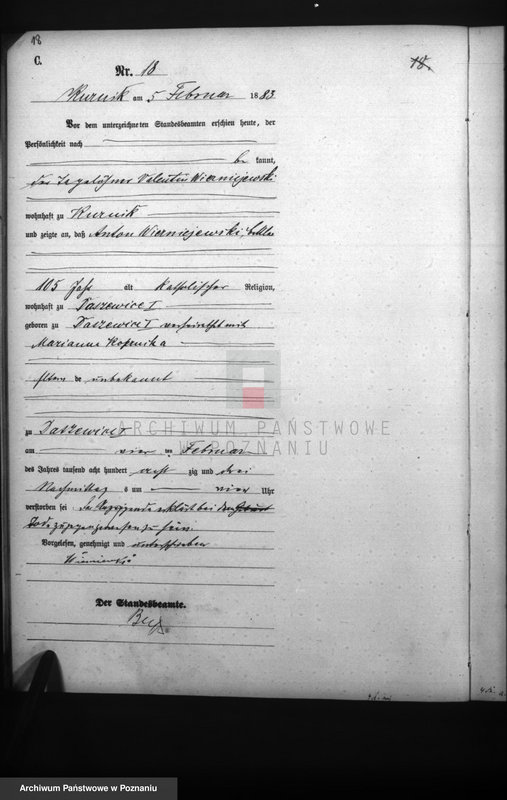 18
C.
18.
Nr. 18
Kurnik am 5 Februar 1883
Vor dem unterzeichneten Standesbeamten erschien heute, der
Persönlichkeit nach
be kannt,
der Tagelöhner Valentin Wierniejewski
wohnhaft zu Kurnik
und zeigte an, daß Anton Wierniejewski,
105 Jahr alt katholischer Religion,
wohnhaft zu Daszewice I
geboren zu Daszewice I verheirathet mit
Marianna
Eltern unbekannt
zu Daszewice I
am vier ten Februar
des Jahres tausend acht hundert acht zig und drei
Nachmittags um vier Uhr
verstorben sei der erklärt bei dem
Tode zugegen gewesen zu sein.
Vorgelesen, genehmigt und unterschrieben
Der Standesbeamte.
ARCHIWUM PAŃSTWOWE
W POZNANIU
Archiwum Państwowe w Poznaniu